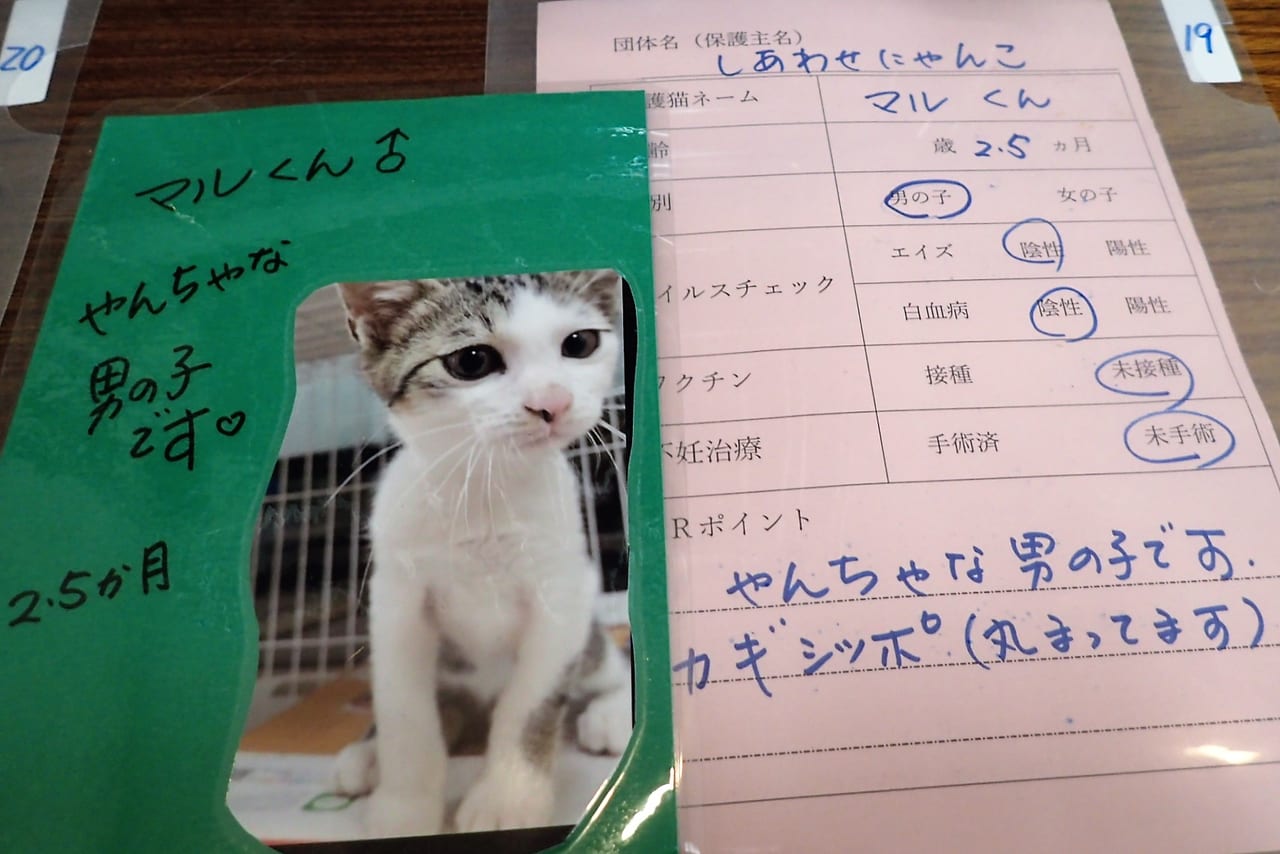 20
19
マルくん♂
やんちゃな
男の子
です♡
2.5か月
団体名（保護主名）
しあわせにゃんこ
護猫ネーム マルくん
齢 歳 2.5 ヵ月
別 男の子 女の子
イルスチェック
エイズ 陰性 陽性
白血病 陰性 陽性
ワクチン 接種 未接種
不妊治療 手術済 未手術
Rポイント
やんちゃな男の子です.
カギシッポ.(丸まってます)